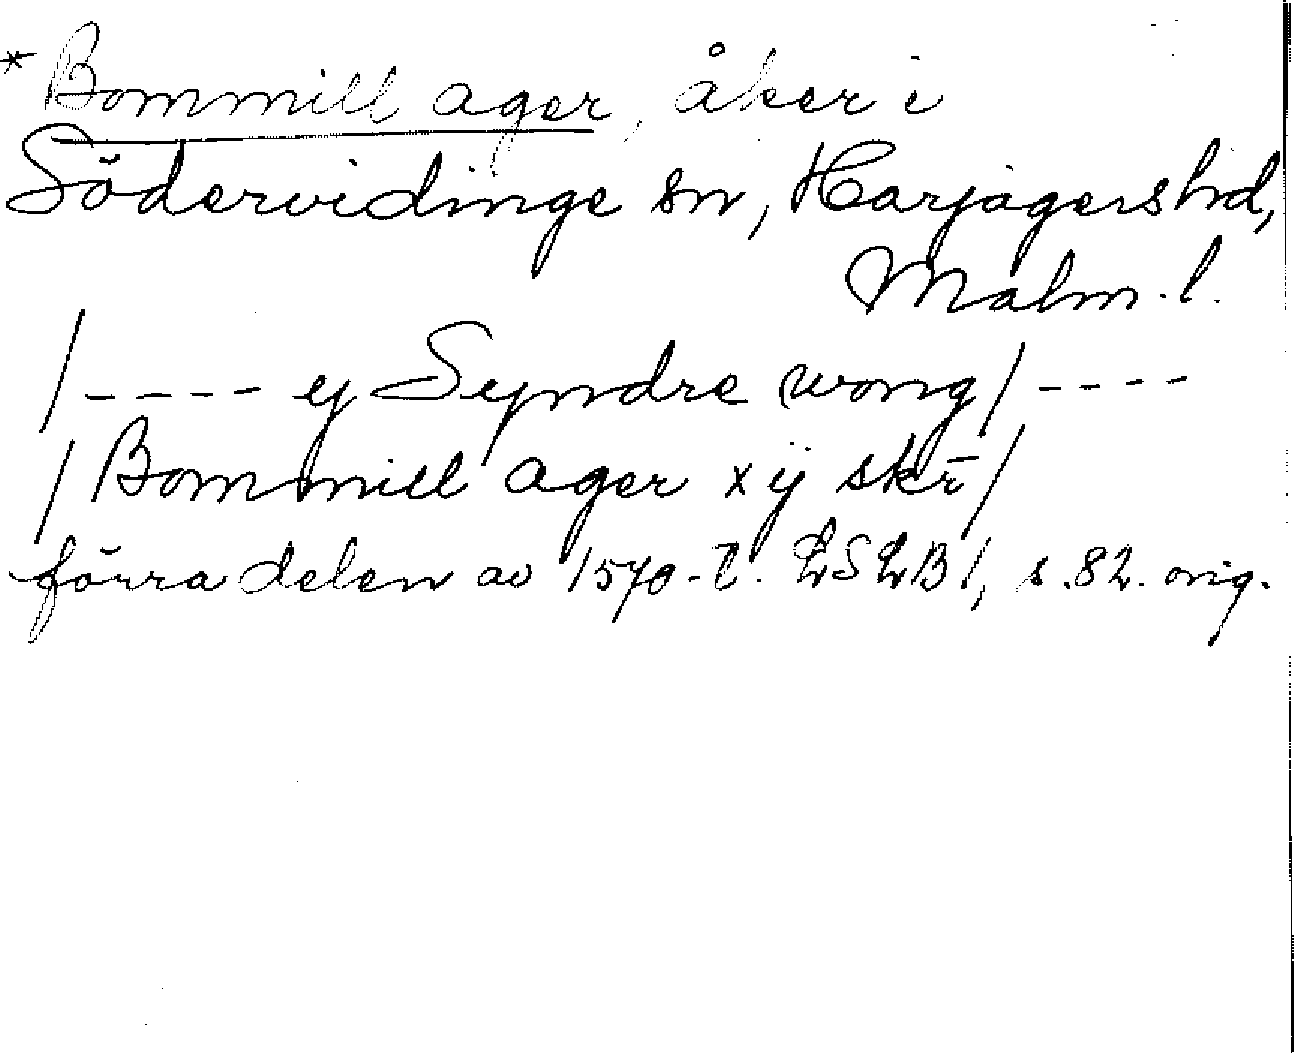 * Bommill ager, åker i
Södervidinge sn, Harjagers hd,
Malm. l.
/---- ej Syndre wong/----
/Bommill ager x ij skr̄/
förra delen av 1570-t. LSLB 1, s. 82. orig.